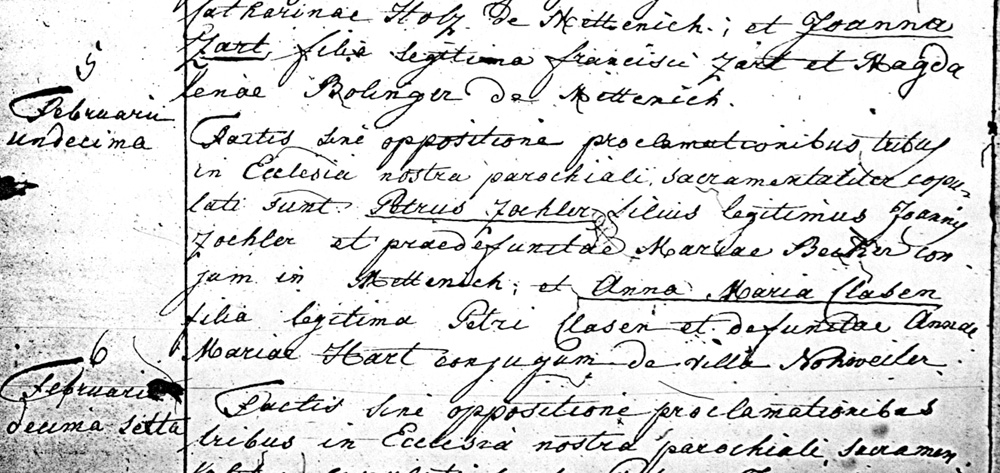 Catharinae Holz de Mettenich; et Joanna
Zart, filia legitima francisci Zart et Magda
lenae Bolinger de Mettenich.
5
Februarii
undecima
Factis sine oppositione proclamationibus tribus
in Ecclesia nostra parochiali, sacramentaliter copu-
lati sunt Petrus Zoehler filius legitimus Joannis
Zoehler et praedefunctae Mariae Becker con
jum in Mettenich; et Anna Maria Clasen
filia legitima Petri Clasen et defunctae Annae
Mariae Hart conjugum de villa Nohweiler.
6
Februarii
decima setta
Factis sine oppositione proclamationibus
tribus in Ecclesia nostra parochiali sacramen